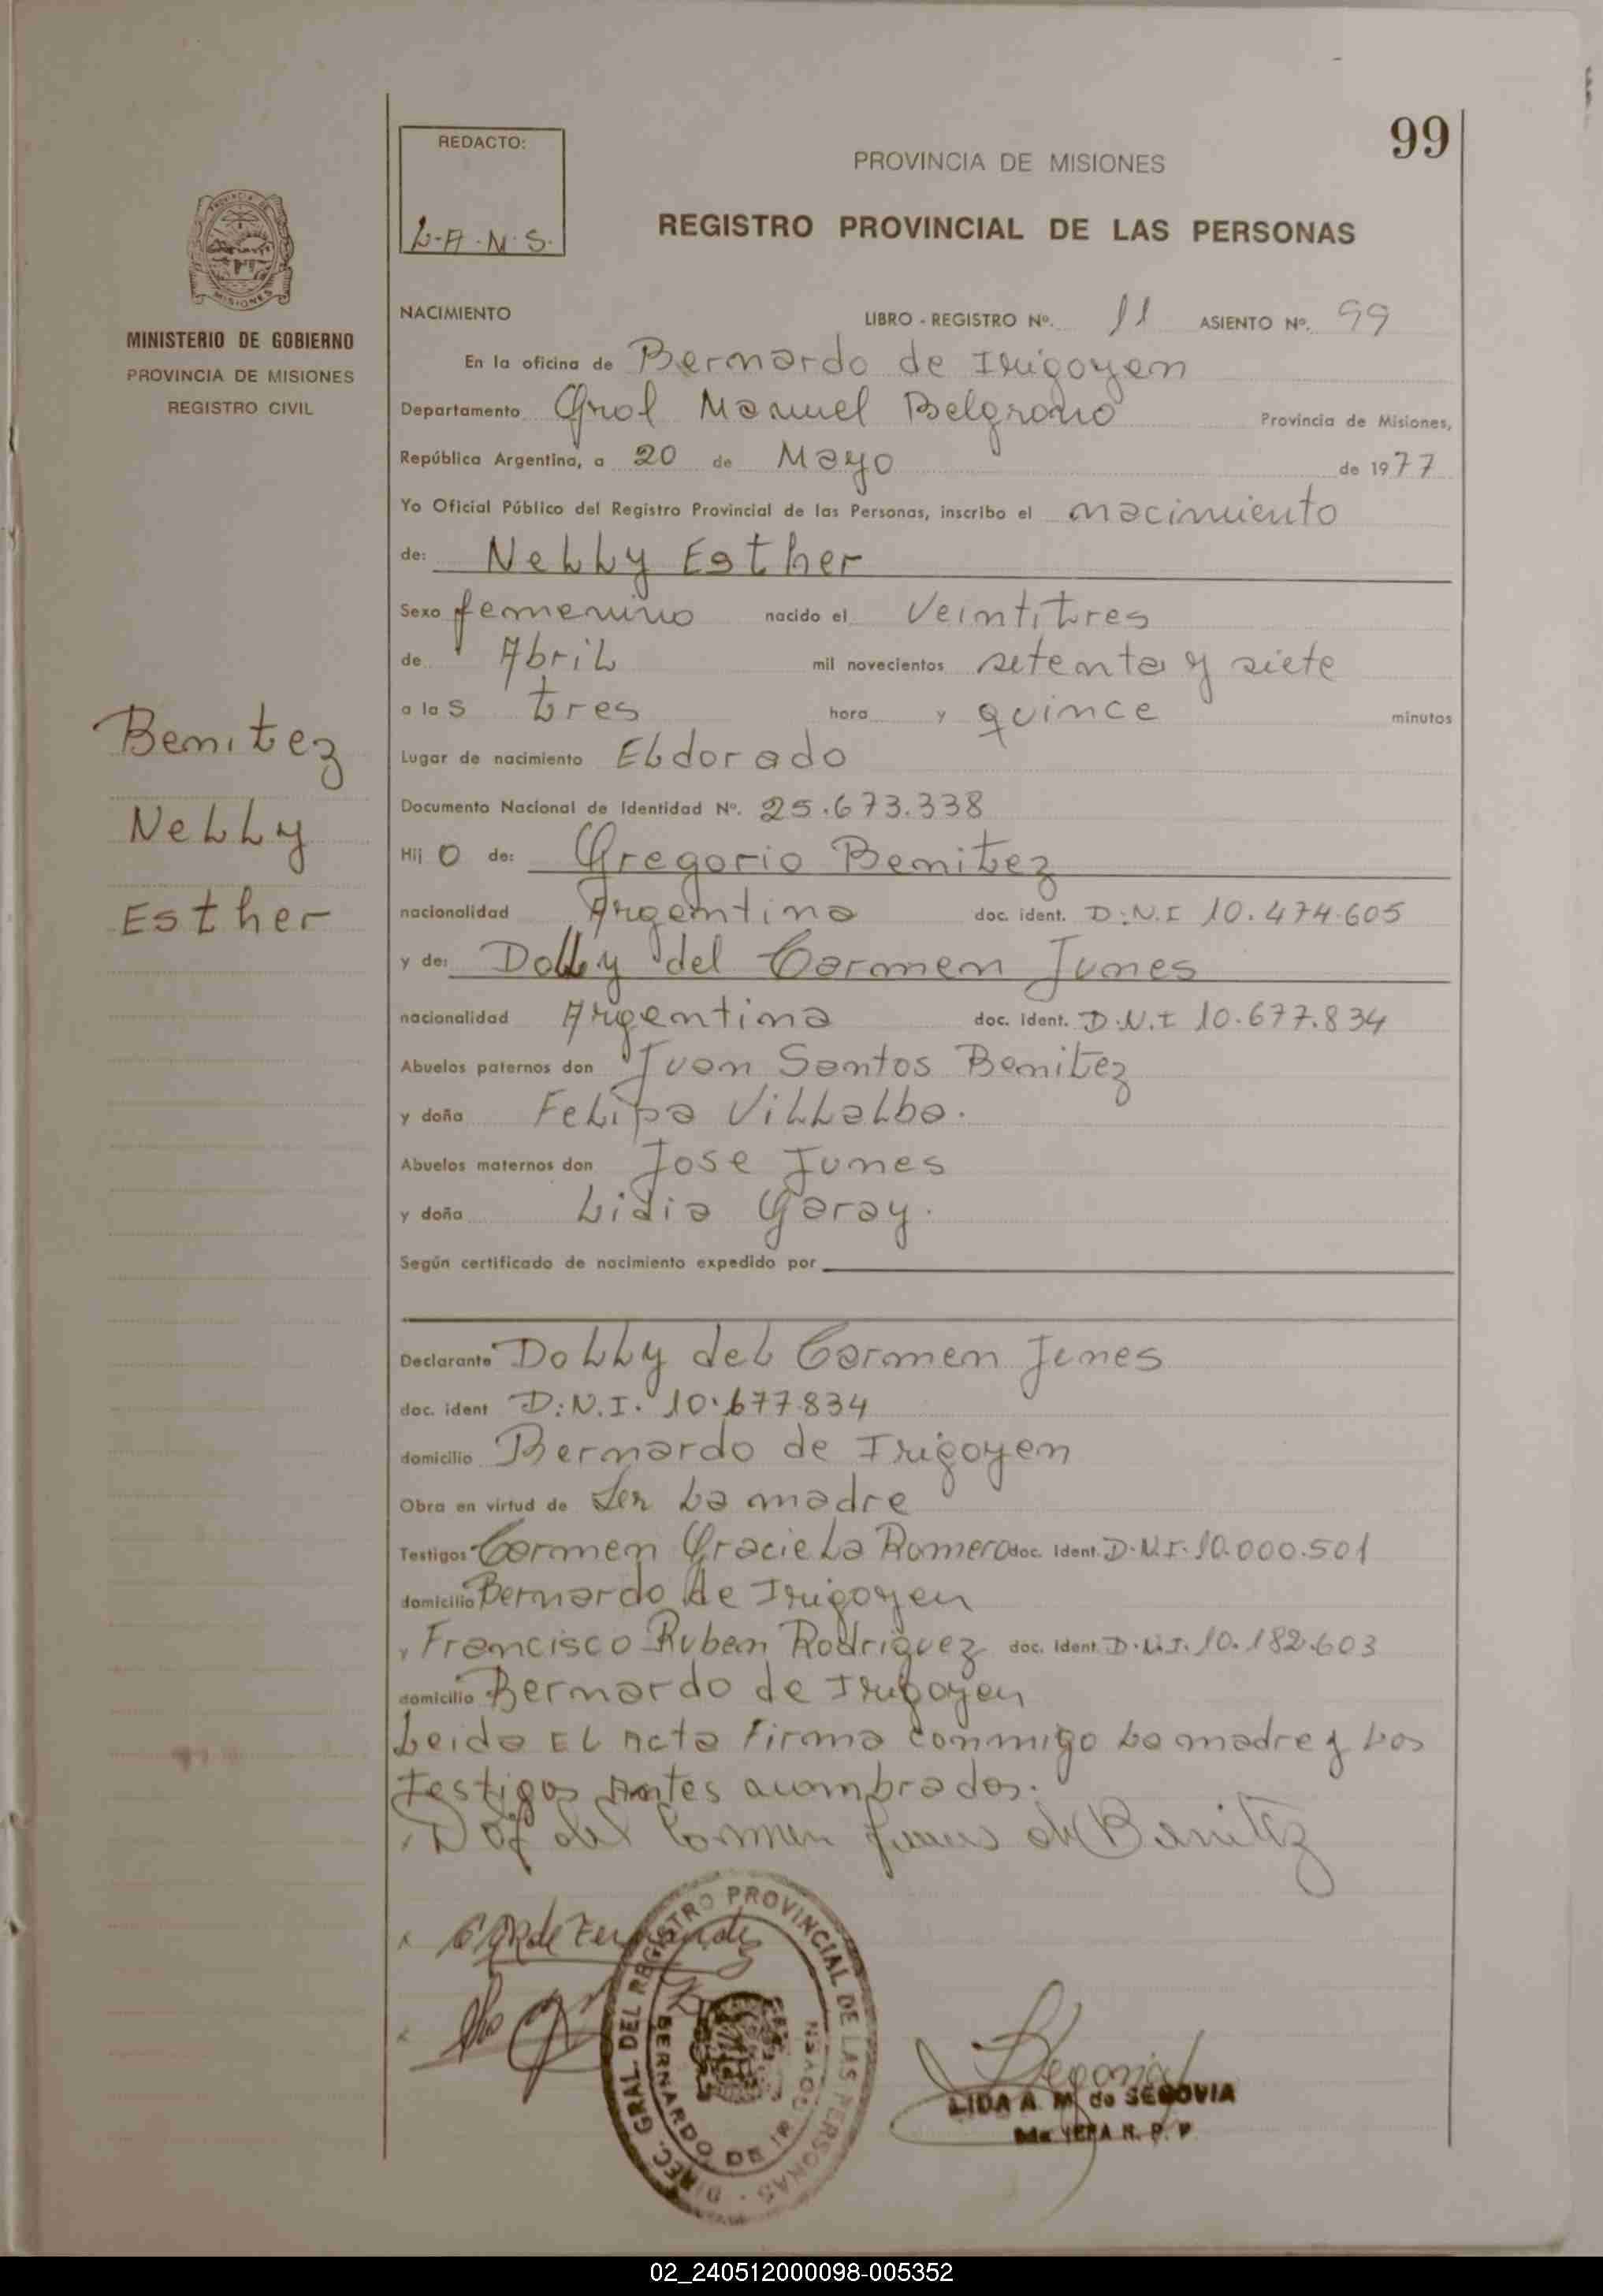 99
REDACTO:
L-A-M-S.
PROVINCIA DE MISIONES
REGISTRO PROVINCIAL DE LAS PERSONAS
PROVINCIA DE
MISIONES
MINISTERIO DE GOBIERNO
PROVINCIA DE MISIONES
REGISTRO CIVIL
NACIMIENTO
LIBRO - REGISTRO Nº. 11 ASIENTO Nº. 99
En la oficina de Bernardo de Irigoyen
Departamento Gral Manuel Belgrano Provincia de Misiones,
República Argentina, a 20 de Mayo de 1977
Yo Oficial Público del Registro Provincial de las Personas, inscribo el nacimiento
de: Nelly Esther
Sexo femenino nacido el Veintitres
de Abril mil novecientos setenta y siete
a las tres hora y quince minutos
Lugar de nacimiento Eldorado
Documento Nacional de Identidad Nº. 25.673.338
Hijo de: Gregorio Benitez
nacionalidad Argentina doc. ident. D.N.I 10.474.605
y de: Dolly del Carmen Junes
nacionalidad Argentina doc. ident. D.N.I 10.677.834
Abuelos paternos don Juan Santos Benitez
y doña Felipa Villalba.
Abuelos maternos don Jose Junes
y doña Lidia Garay.
Según certificado de nacimiento expedido por
Declarante Dolly del Carmen Junes
doc. ident D.N.I. 10.677.834
domicilio Bernardo de Irigoyen
Obra en virtud de Ser La madre
Testigos Carmen Graciela Romero doc. ident. D.N.I. 10.000.501
domicilio Bernardo de Irigoyen
y Francisco Ruben Rodriguez doc. ident. D.N.I. 10.182.603
domicilio Bernardo de Irigoyen
Leida EL Acta Firma conmigo La madre y Los
testigos Antes
del Carmen Junes de Benitez
Benitez
Nelly
Esther
DIREC. GRAL. DEL REGISTRO PROVINCIAL DE LAS PERSONAS
BERNARDO DE IRIGOYEN
LIDA A. M. de SEGOVIA
R. P. P.
02_240512000098-005352